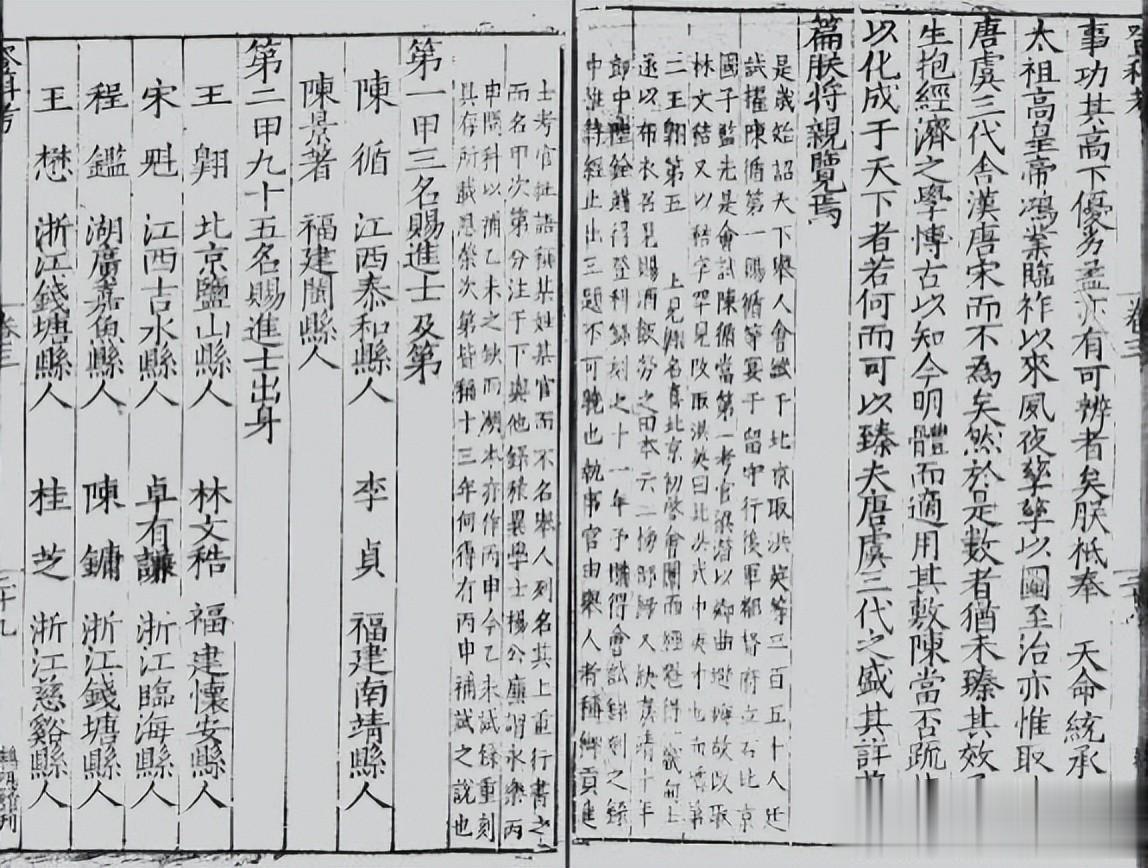 事功其高下優劣盖亦有可辨者矣朕祗奉　天命統承
太祖高皇帝鴻業臨祚以來夙夜孳孳以圖至治亦惟取
唐虞三代舍漢唐宋而不為矣然於是數者猶未臻其效
生抱經濟之學博古以知今明體而適用其敷陳當否疏
以化成于天下者若何而可以臻夫唐虞三代之盛其詳
篇朕將親覽焉
是歲始詔天下舉人會試于北京取洪英等三百五十人廷
試擢陳循第一賜循等宴于留守行後軍都督府立石北京
國子監先是會試陳循當第一考官梁潛以鄉曲避嫌故以取
林文秸又以秸字罕見改取洪英曰此洪武中英才也而置第
二王翱第五　上見翱名喜北京初啓會闈而經魁得
遂以布衣召見賜酒飯
中惟詩經止出三題不可曉也執事官由舉人者稱鄉貢進
士考官批語稱某姓某官而不名舉人列名其上重行書之
而名甲次第分注于下與他錄殊異學士楊公廉謂永樂丙
申開科以補乙未之缺而湖本亦作丙申今乙未試錄重刻
具存所載恩榮次第皆稱十三年何得有丙申補試之說也
第一甲三名賜進士及第
陳循　江西泰和縣人　李貞　福建南靖縣人
陳景著　福建閩縣人
第二甲九十五名賜進士出身
王翱　北京鹽山縣人　林文秸　福建懷安縣人
宋魁　江西吉水縣人　卓有謙　浙江臨海縣人
程鑑　湖廣嘉魚縣人　陳鏞　浙江錢塘縣人
王懋　浙江錢塘縣人　桂芝　浙江慈谿縣人
登科考
卷三
二十九